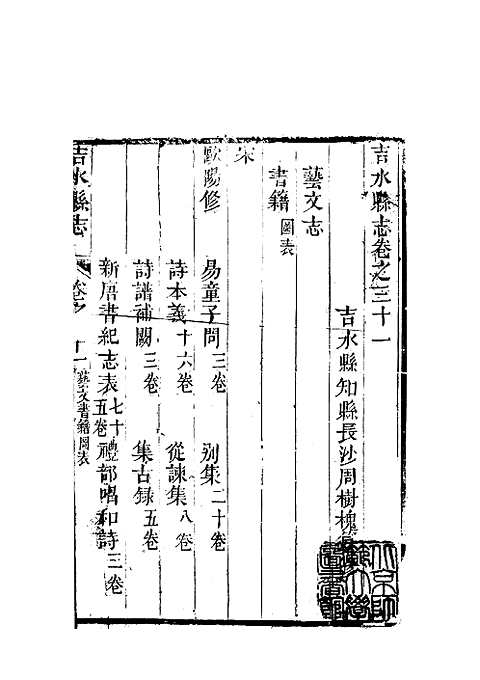 吉水縣志卷之三十一
吉水縣知縣長沙周樹槐
藝文志
書籍 圖表
宋
歐陽修
易童子問三卷 別集二十卷
詩本義十六卷 從諫集八卷
詩譜補闕三卷 集古録五卷
新唐書紀志表七十五卷 禮部唱和詩三卷
吉水縣志 卷之 十一 藝文書籍圖表